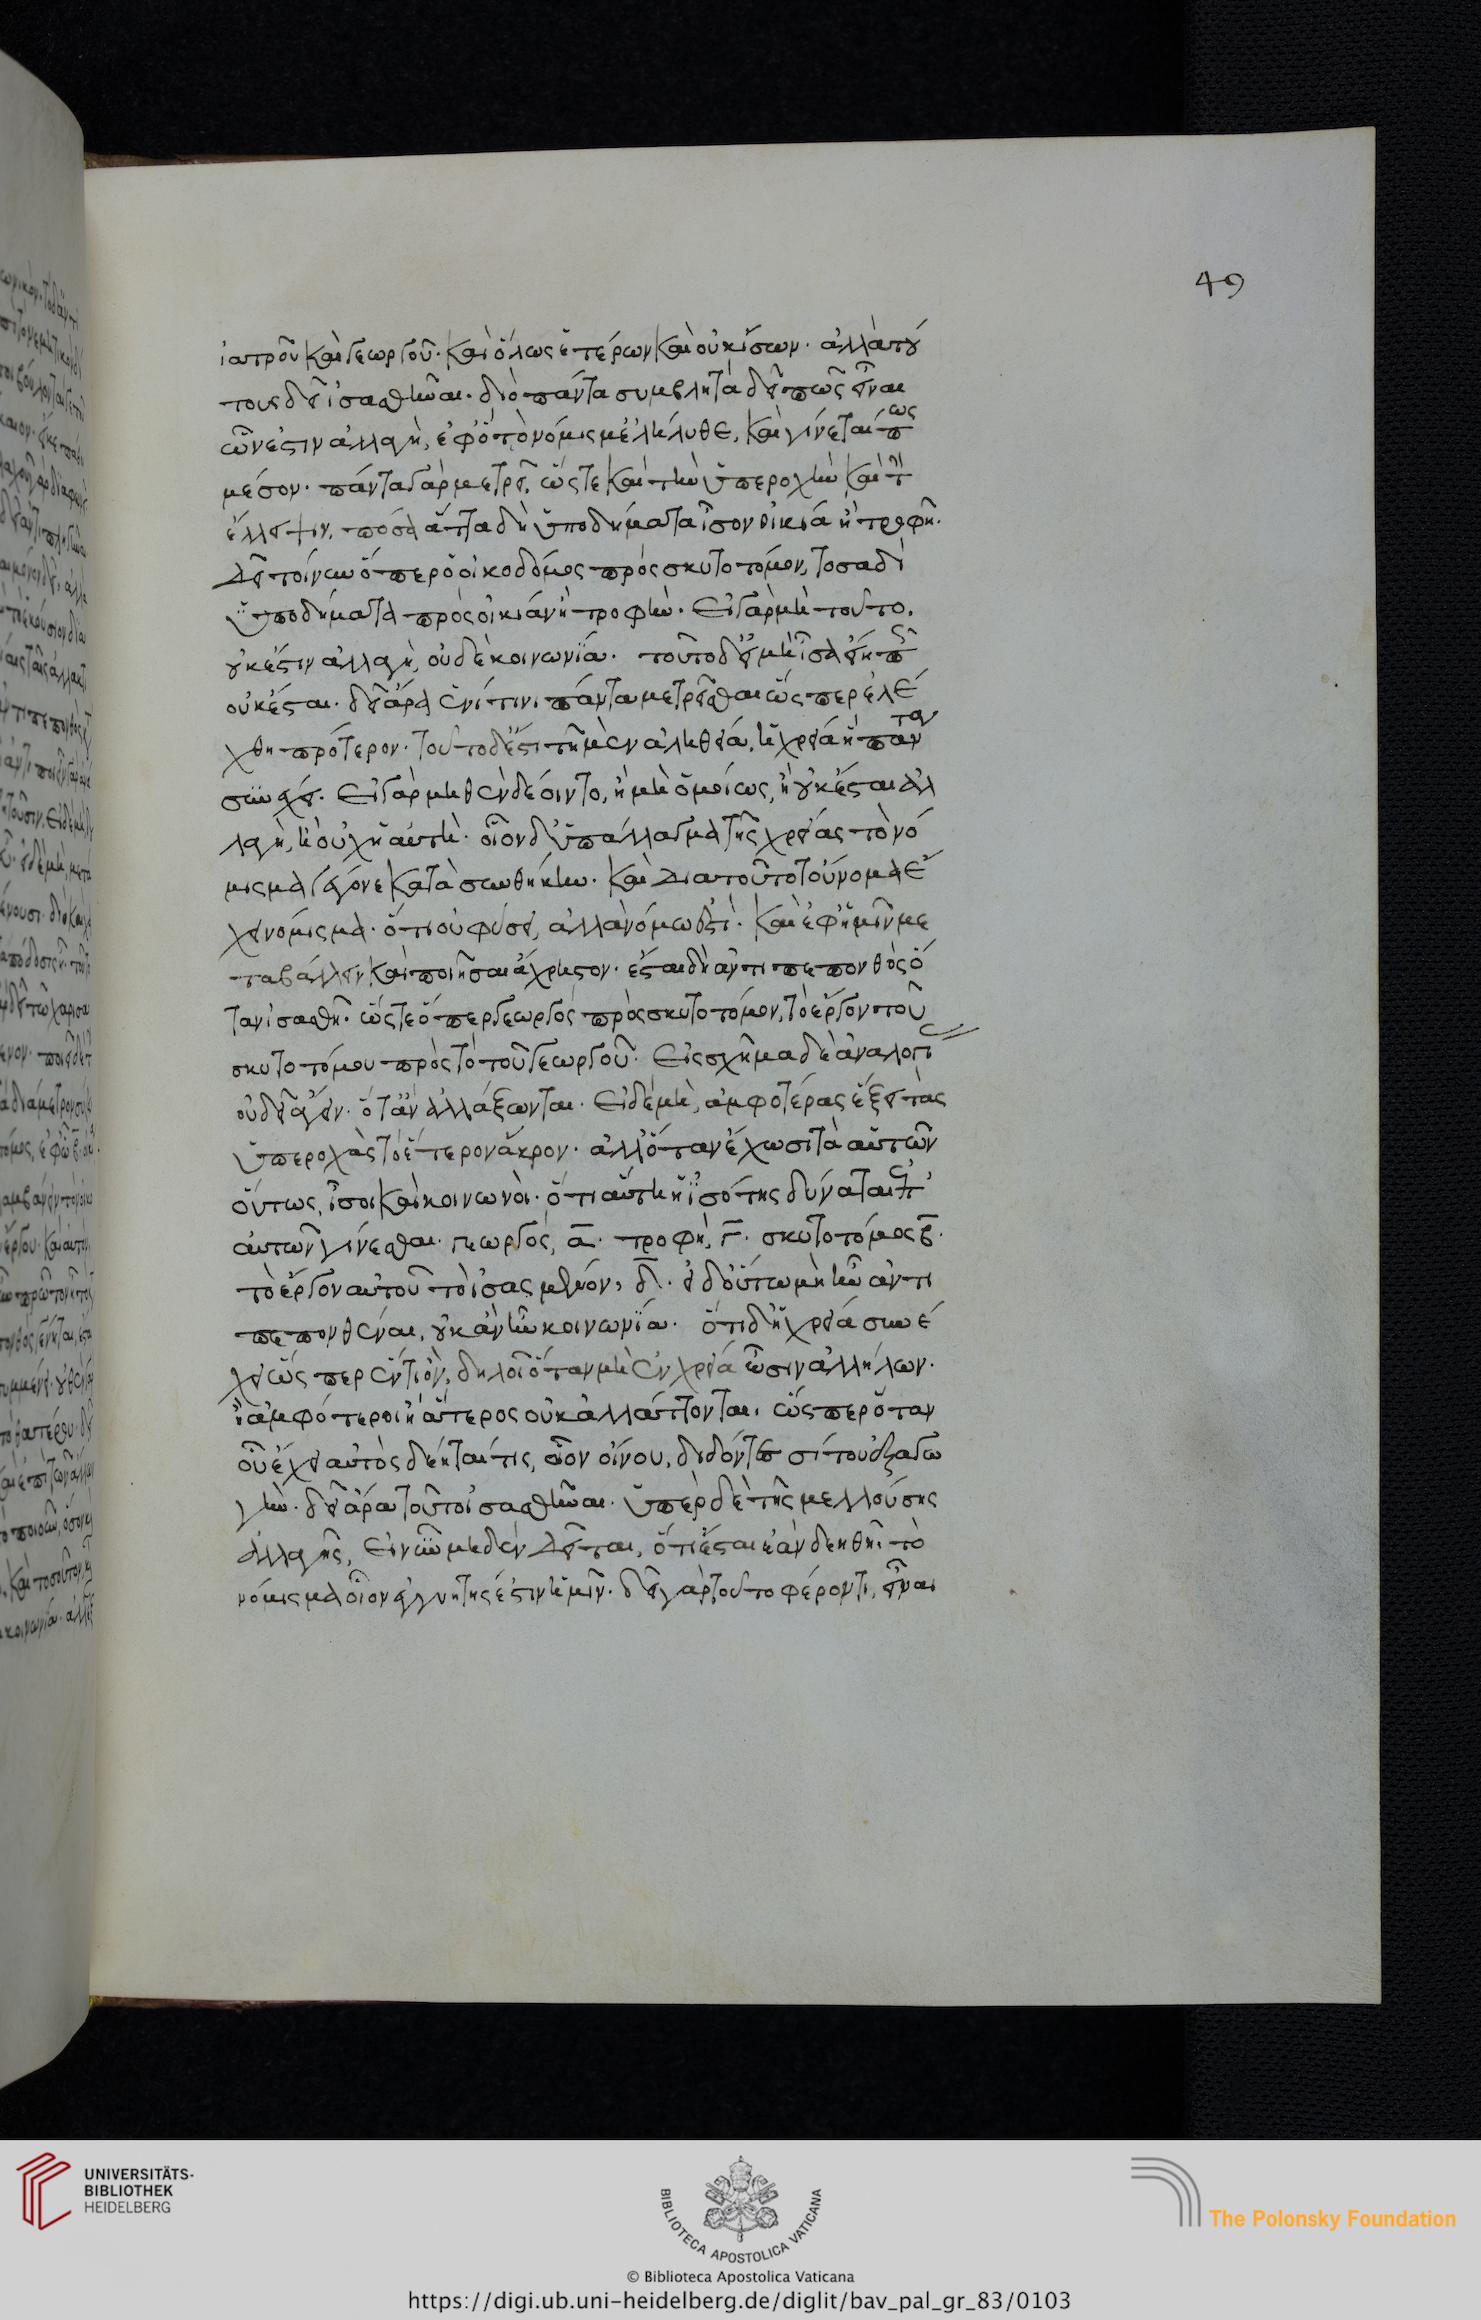 49
ἰατροῦ καὶ γεωργοῦ· καὶ ὅλως ἑτέρων καὶ οὐκ ἴσων· ἀλλὰ τού
τους δεῖ ἰσασθῆναι· διὸ πάντα συμβλητὰ δεῖ πῶς εἶναι
ὧν ἐστιν ἀλλαγὴ, ἐφ' ὃ τὸ νόμισμ' ἐλήλυθε, καὶ γίνεταί πως
μέσον· πάντα γὰρ μετρεῖ, ὥστε καὶ τὴν ὑπεροχὴν καὶ τὴν
ἔλλειψιν, πόσα ἄττα δὴ ὑποδήματα ἴσον οἰκία ἢ τροφῆ·
δεῖ τοίνυν ὅπερ ὁ οἰκοδόμος πρὸς σκυτοτόμον, τοσαδὶ
ὑποδήματα πρὸς οἰκίαν ἢ τροφήν· Εἰ γὰρ μὴ τοῦτο,
οὐκ ἔστιν ἀλλαγὴ, οὐδὲ κοινωνία· τοῦτο δ' εἰ μὴ ἴσα εἴη πῶς
οὐκ ἔσται· δεῖ ἄρα ἑνί τινι πάντα μετρεῖσθαι ὥσπερ ἐλέ
χθη πρότερον· τοῦτο δ' ἔστι τῇ μὲν ἀληθείᾳ, ἡ χρεία ἣ πάντα
συνέχει· Εἰ γὰρ μηθὲν δέοιντο, ἢ μὴ ὁμοίως, ἢ οὐκ ἔσται ἀλ
λαγὴ, ἢ οὐχ ἡ αὐτή· οἷον δ' ὑπάλλαγμα τῆς χρείας τὸ νό
μισμα γέγονε κατὰ συνθήκην· καὶ διὰ τοῦτο τοὔνομα ἔ
χει νόμισμα· ὅτι οὐ φύσει, ἀλλὰ νόμω ἐστί· καὶ ἐφ' ἡμῖν με
ταβάλλειν καὶ ποιῆσαι ἄχρηστον· ἔσται δὴ ἀντιπεπονθὸς ὅ
ταν ἰσασθῆ· ὥστε ὅπερ γεωργὸς πρὸς σκυτοτόμον, τὸ ἔργον τοῦ
σκυτοτόμου πρὸς τὸ τοῦ γεωργοῦ· Εἰς σχῆμα δὲ ἀναλογί
οὐ δεῖ ἄγειν· ὅταν ἀλλάξωνται· Εἰ δὲ μὴ, ἀμφοτέρας ἕξει τὰς
ὑπεροχὰς τὸ ἕτερον ἄκρον· ἀλλ' ὅταν ἔχωσι τὰ αὑτῶν
οὕτως, ἴσοι καὶ κοινωνοὶ· ὅτι αὕτη ἡ ἰσότης δύναται ἐπ'
αὐτῶν γίνεσθαι· γεωργὸς, α· τροφὴ, γ· σκυτοτόμος β·
τὸ ἔργον αὐτοῦ τὸ ἰσασμένον, δ· εἰ δ' οὕτω μὴ ἦν ἀντι
πεπονθέναι, οὐκ ἂν ἦν κοινωνία· ὅτι δ' ἡ χρεία συνέ
χει ὥσπερ ἕν τι ὂν, δηλοῖ ὅταν μὴ ἐν χρεία ὦσιν ἀλλήλων·
ἢ ἀμφότεροι ἢ ἅτερος οὐκ ἀλλάττονται, ὥσπερ ὅταν
οὗ ἔχει αὐτὸς δέηταί τις, οἷον οἴνου, διδόντες σίτου ἐξαγω
γήν· δεῖ ἄρα τοῦτο ἰσασθῆναι· ὑπὲρ δὲ τῆς μελλούσης
ἀλλαγῆς, Εἰ νῦν μηδὲν δεῖται, ὅτι ἔσται ἐὰν δεηθῆ, τὸ
νόμισμα οἷον ἐγγυητής ἐστιν ἡμῖν· δεῖ γὰρ τοῦτο φέροντι, εἶναι
UNIVERSITÄTS-
BIBLIOTHEK
HEIDELBERG
BIBLIOTECA APOSTOLICA VATICANA
© Biblioteca Apostolica Vaticana
The Polonsky Foundation
https://digi.ub.uni-heidelberg.de/diglit/bav_pal_gr_83/0103